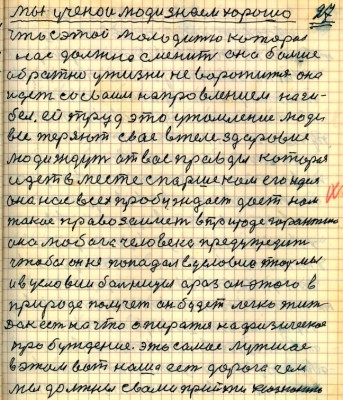 мы ученои люди знаем хорошо 27
что с этой молодижю котороя
нас должна сменить она больше
обратно у жизни не воротится она
идет со своим направлением на ги-
бел. ей труд это утомление люди
все теряют свае в теле здоровие
люди ждут от вас правды которая
идет в месте с паршеком его идея
она нас всех пробуждает дает нам
такое право займет в природе гарантию
она любова человека предупредит
чтобы он не попадал в условие тюрмы
и в условии болницы а раз он этого в
природе получет он будет легко жит.
Вам ест на что опиратся на физическое
пробуждение. это самае лутшае
в этом вот наша ест дорога чем
мы должны с вами прийти к